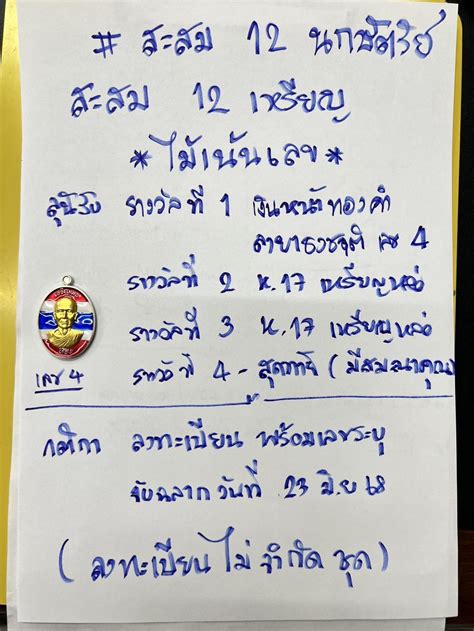 # สะสม 12 นักษัตริย์
สะสม 12 เหรียญ
*ไม่เน้นเลข*
ลุ้นรับ รางวัลที่ 1 เงินหน้าทองคำ
ลายาธงชาติ เลข 4
รางวัลที่ 2 น.17 เหรียญหล่อ
รางวัลที่ 3 น.17 เหรียญหล่อ
เลข 4 รางวัลที่ 4 - สุดท้าย (มีสมนาคุณ)
กติกา ลงทะเบียน พร้อมเลขระบุ
จับฉลาก วันที่ 23 มิ.ย 68
(ลงทะเบียน ไม่ จำกัด ชุด)